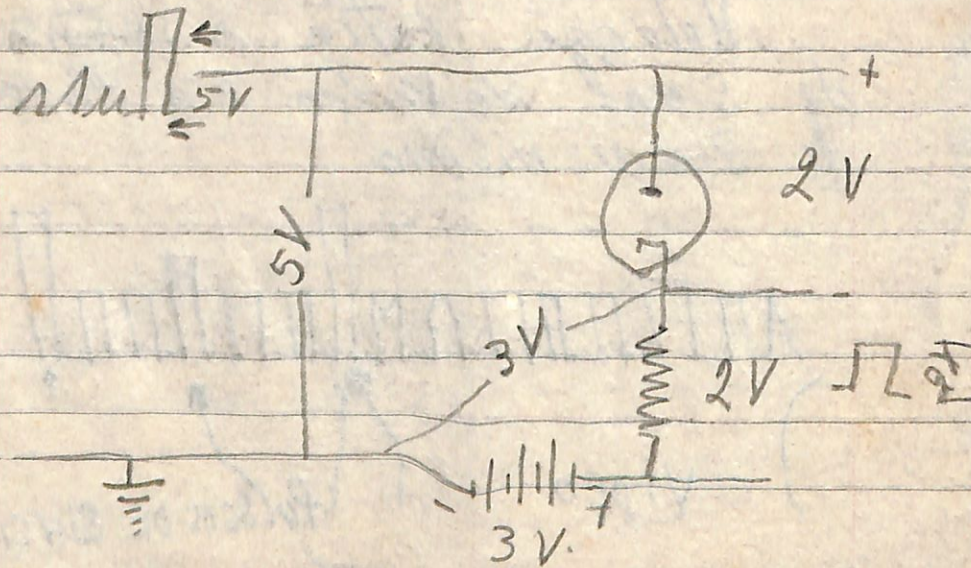 5V
+
2 V
5V
3V
2V
- +
3 V.